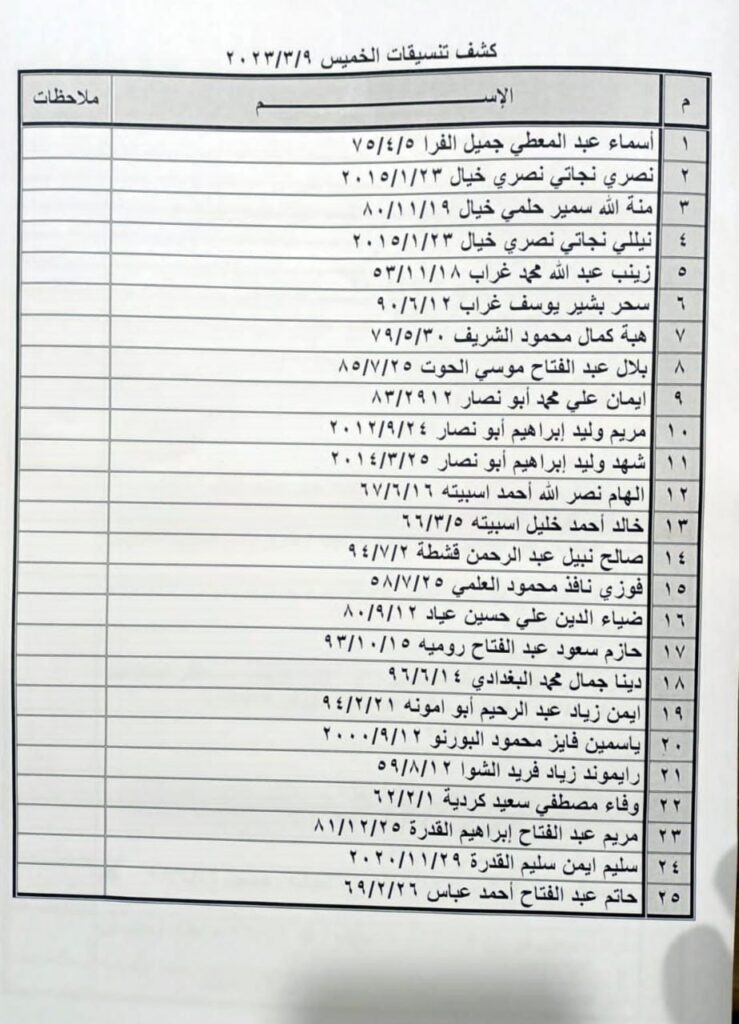 كشف تنسيقات الخميس ٢٠٢٣/٣/٩
م الإســـــــــم ملاحظات
١ أسماء عبد المعطي جميل الفرا ٧٥/٤/٥
٢ نصري نجاتي نصري خيال ٢٠١٥/١/٢٣
٣ منة الله سمير حلمي خيال ٨٠/١١/١٩
٤ نيللي نجاتي نصري خيال ٢٠١٥/١/٢٣
٥ زينب عبد الله محمد غراب ٥٣/١١/١٨
٦ سحر بشير يوسف غراب ٩٠/٦/١٢
٧ هبة كمال محمود الشريف ٧٩/٥/٣٠
٨ بلال عبد الفتاح موسي الحوت ٨٥/٧/٢٥
٩ ايمان علي محمد أبو نصار ٨٣/٢٩١٢
١٠ مريم وليد إبراهيم أبو نصار ٢٠١٢/٩/٢٤
١١ شهد وليد إبراهيم أبو نصار ٢٠١٤/٣/٢٥
١٢ الهام نصر الله أحمد اسبيته ٦٧/٦/١٦
١٣ خالد أحمد خليل اسبيته ٦٦/٣/٥
١٤ صالح نبيل عبد الرحمن قشطة ٩٤/٧/٢
١٥ فوزي نافذ محمود العلمي ٥٨/٧/٢٥
١٦ ضياء الدين علي حسين عياد ٨٠/٩/١٢
١٧ حازم سعود عبد الفتاح روميه ٩٣/١٠/١٥
١٨ دينا جمال محمد البغدادي ٩٦/٦/١٤
١٩ ايمن زياد عبد الرحيم أبو امونه ٩٤/٢/٢١
٢٠ ياسمين فايز محمود البورنو ٢٠٠٠/٩/١٢
٢١ رايموند زياد فريد الشوا ٥٩/٨/١٢
٢٢ وفاء مصطفي سعيد كردية ٦٢/٢/١
٢٣ مريم عبد الفتاح إبراهيم القدرة ٨١/١٢/٢٥
٢٤ سليم ايمن سليم القدرة ٢٠٢٠/١١/٢٩
٢٥ حاتم عبد الفتاح أحمد عباس ٦٩/٢/٢٦